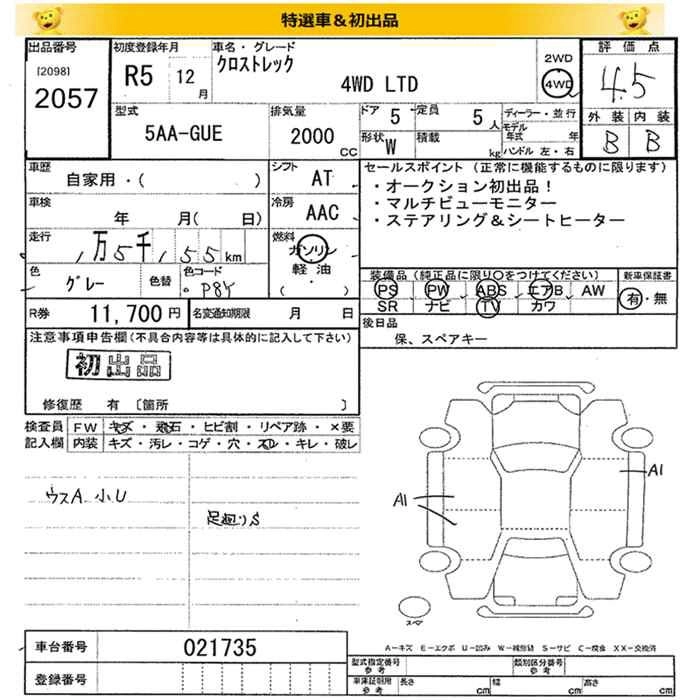 特選車＆初出品
出品番号 初度登録年月 車名・グレード 評価点
[2098] 2057 R5 12月 クロストレック 4WD LTD 2WD 4WD 4.5
型式 排気量 ドア 定員 ディーラー・並行 外装 内装
5AA-GUE 2000 CC 5 5人 モデル年式 年 B B
形状 W 積載 kg ハンドル 左・右
車歴 シフト セールスポイント（正常に機能するものに限ります）
自家用・（ ） AT ・オークション初出品！
車検 冷房 ・マルチビューモニター
年 月（ 日） AAC ・ステアリング&シートヒーター
走行 燃料
万5千,155km ガソリン
軽油
（ ・ ）
色 色替 色コード 装備品（純正品に限り○をつけてください） 新車保証書
グレー P8Y PS PW ABS エアB AW 有・無
SR ナビ TV カワ
R券 11,700円 名変通知期限 月 日 後日品
保、スペアキー
注意事項申告欄（不具合内容等は具体的に記入して下さい）
初出品
修復歴 有 〔箇所 〕
検査員 FW キズ・飛石・ヒビ割・リペア跡・×要
記入欄 内装 キズ・汚レ・コゲ・穴・スレ・キレ・破レ
ウスA 小U
足廻りS
A1
A1
スペア
A-キズ E-エクボ U-凹み W-補修跡 S-サビ C-腐食 XX-交換済
車台番号 021735
型式指定番号 参考 類別区分番号 参考
登録番号 車庫証明用 参考 長さ cm 幅 cm 高さ cm